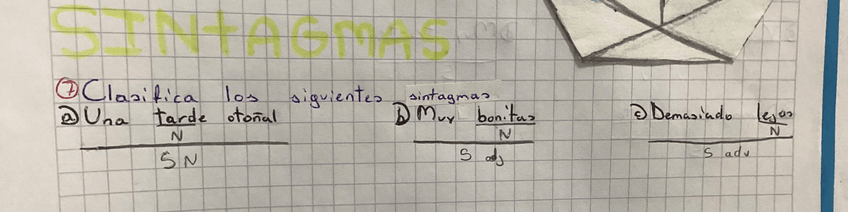 SINtAGMAS
7 Clasifica los siguientes sintagmas
a) Una tarde otoñal b) Muy bonitas c) Demasiado lejos
N N N
SN S adj S adv